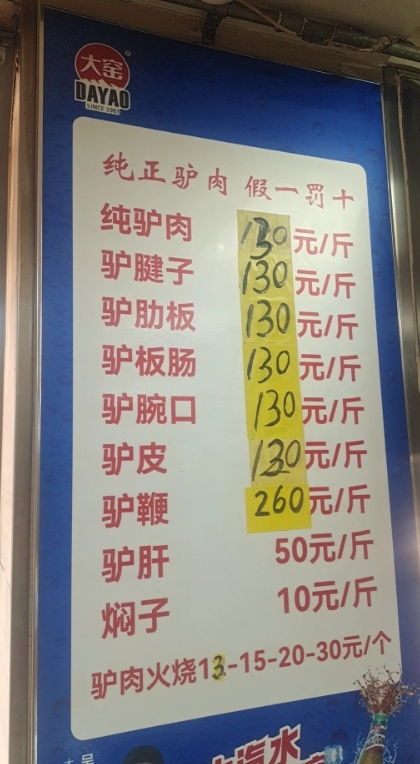 大窑
DAYAO
SINCE 1983
纯正驴肉 假一罚十
纯驴肉 130元/斤
驴腱子 130元/斤
驴肋板 130元/斤
驴板肠 130元/斤
驴腕口 130元/斤
驴皮 130元/斤
驴鞭 260元/斤
驴肝 50元/斤
焖子 10元/斤
驴肉火烧13-15-20-30元/个
汽水